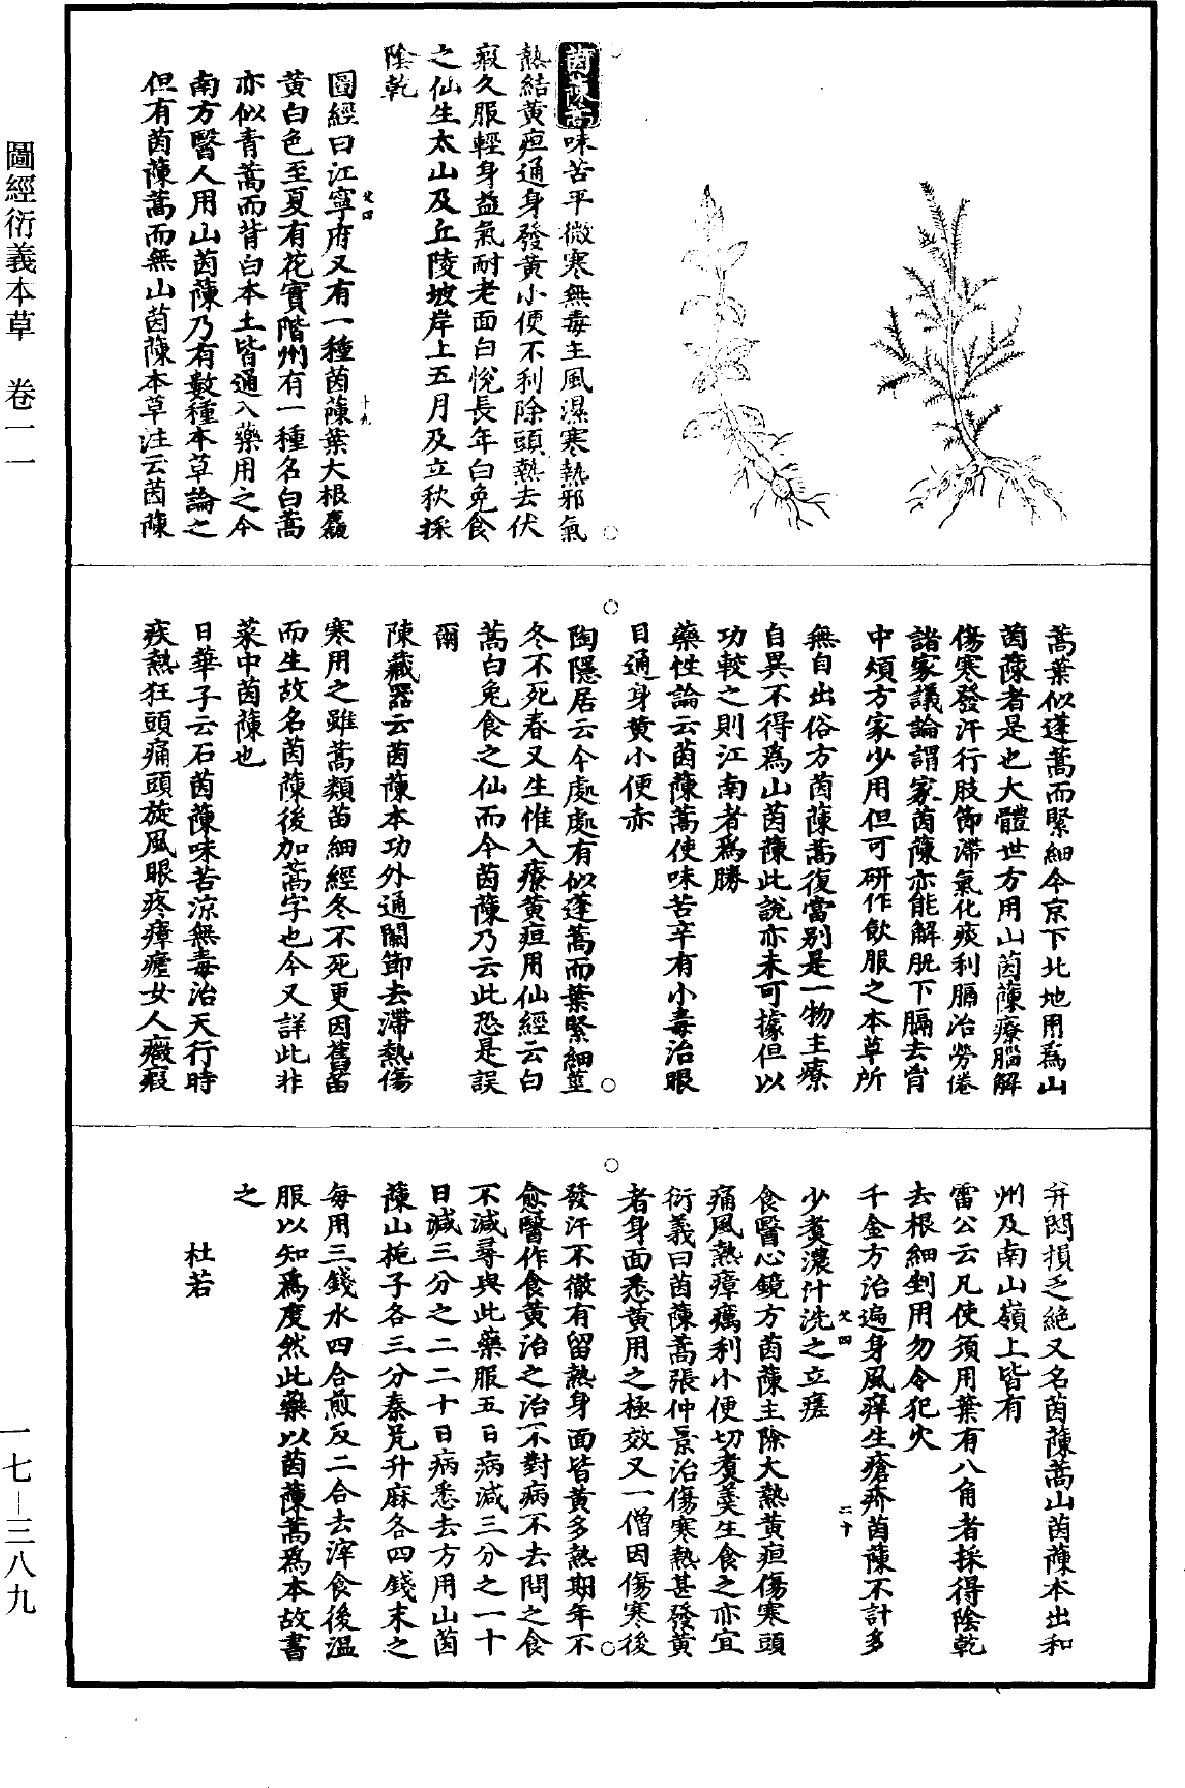 圖經衍義本草　卷一一
茵蔯蒿味苦平微寒無毒主風濕寒熱邪氣
熱結黃疸通身發黃小便不利除頭熱去伏
瘕久服輕身益氣耐老面白悅長年白兔食
之仙生太山及丘陵坡岸上五月及立秋採
陰乾
圖經曰江寧府又有一種茵蔯葉大根麤
黃白色至夏有花實階州有一種名白蒿
亦似青蒿而背白本土皆通入藥用之今
南方醫人用山茵蔯乃有數種本草論之
但有茵蔯蒿而無山茵蔯本草注云茵蔯
十九
蒿葉似蓬蒿而緊細今京下北地用為山
茵蔯者是也大體世方用山茵蔯療腦解
傷寒發汗行肢節滯氣化痰利膈治勞倦
諸家議論謂家茵蔯亦能解肌下膈去胷
中煩方家少用但可研作飲服之本草所
無自出俗方茵蔯蒿復當別是一物主療
自異不得為山茵蔯此說亦未可據但以
功較之則江南者為勝
藥性論云茵蔯蒿使味苦辛有小毒治眼
目通身黃小便赤
陶隱居云今處處有似蓬蒿而葉緊細莖
冬不死春又生惟入療黃疸用仙經云白
蒿白兔食之仙而今茵蔯乃云此恐是誤
爾
陳藏器云茵蔯本功外通關節去滯熱傷
寒用之雖蒿類苗細經冬不死更因舊苗
而生故名茵蔯後加蒿字也今又詳此非
菜中茵蔯也
日華子云石茵蔯味苦涼無毒治天行時
疾熱狂頭痛頭旋風眼疼瘴瘧女人癥瘕
并悶損乏絕又名茵蔯蒿山茵蔯本出和
州及南山嶺上皆有
雷公云凡使須用葉有八角者採得陰乾
去根細剉用勿令犯火
千金方治遍身風痒生瘡疥茵蔯不計多
少煮濃汁洗之立瘥
二十
食醫心鏡方茵蔯主除大熱黃疸傷寒頭
痛風熱瘴癘利小便切煮羹生食之亦宜
衍義曰茵蔯蒿張仲景治傷寒熱甚發黃
者身面悉黃用之極效又一僧因傷寒後
發汗不徹有留熱身面皆黃多熱期年不
愈醫作食黃治之治不對病不去問之食
不減尋與此藥服五日病減三分之一十
日減三分之二二十日病悉去方用山茵
蔯山梔子各三分秦艽升麻各四錢末之
每用三錢水四合煎及二合去滓食後溫
服以知為度然此藥以茵蔯蒿為本故書
之
杜若
一七—三八九